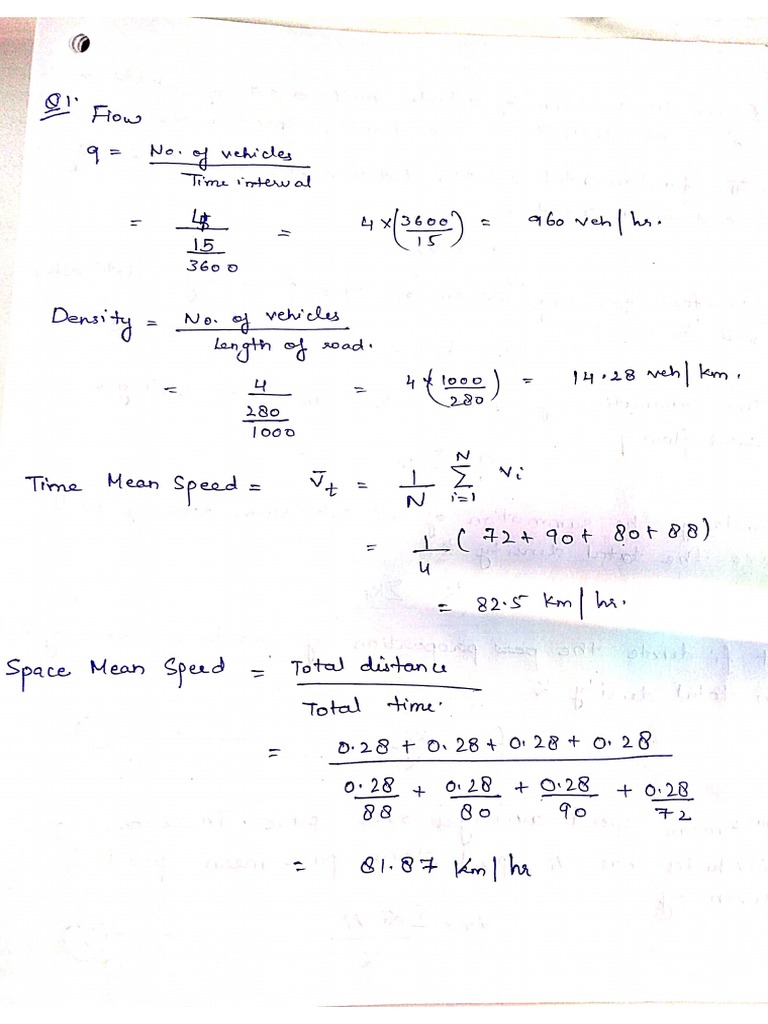 Q1. Flow
q = No. of vehicles / Time interval
= 4 / (15 / 3600) = 4 × (3600 / 15) = 960 veh / hr.
Density = No. of vehicles / Length of road.
= 4 / (280 / 1000) = 4 × (1000 / 280) = 14.28 veh / km.
Time Mean Speed = V̄t = 1/N Σ_{i=1}^{N} vi
= 1/4 ( 72 + 90 + 80 + 88 )
= 82.5 km / hr.
Space Mean Speed = Total distance / Total time.
= (0.28 + 0.28 + 0.28 + 0.28) / (0.28/88 + 0.28/80 + 0.28/90 + 0.28/72)
= 81.87 km / hr